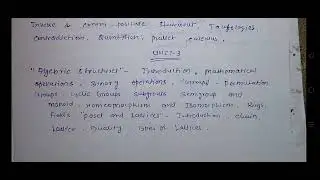 Inverse & common positive statement, Tautologies,
Contradiction, Quantifiers, predict calculus.
UNIT-3
"Algebric Structures" - Introduction, mathematical
operations, Binary operations, Normal, Permutation
Groups, Cyclic Groups Subgroups Semigroup and
monoid, Homeomorphism and Isomorphism, Rings,
Fields "poset and Lattices" - Introduction, chain
Lattice, Duality types of Lattices.